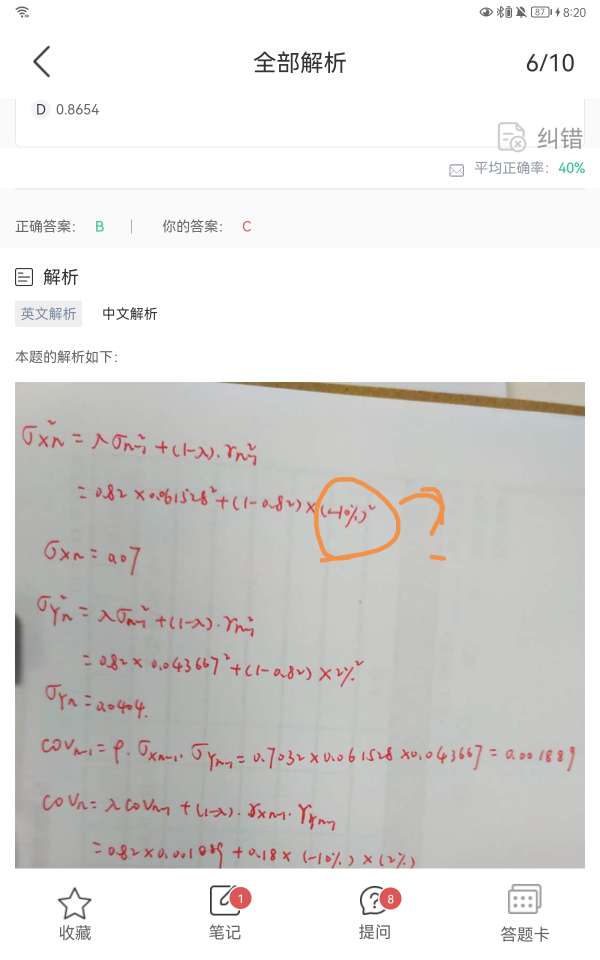 87 8:20
全部解析
6/10
D 0.8654
纠错
平均正确率：40%
正确答案： B 你的答案： C
解析
英文解析 中文解析
本题的解析如下：
σXn² = λσn-1² + (1-λ)·rn-1²
= 0.82 × 0.061528² + (1-0.82) × (-10%)² ?
σXn = 0.07
σYn² = λσn-1² + (1-λ)·rn-1²
= 0.82 × 0.043667² + (1-0.82) × 2%²
σYn = 0.0404.
COVn-1 = ρ·σXn-1·σYn-1 = 0.7032 × 0.061528 × 0.043667 = 0.001889
COVn = λCOVn-1 + (1-λ)·rXn-1·rYn-1
= 0.82 × 0.001889 + 0.18 × (-10%) × (2%)
收藏
1
笔记
8
提问
答题卡